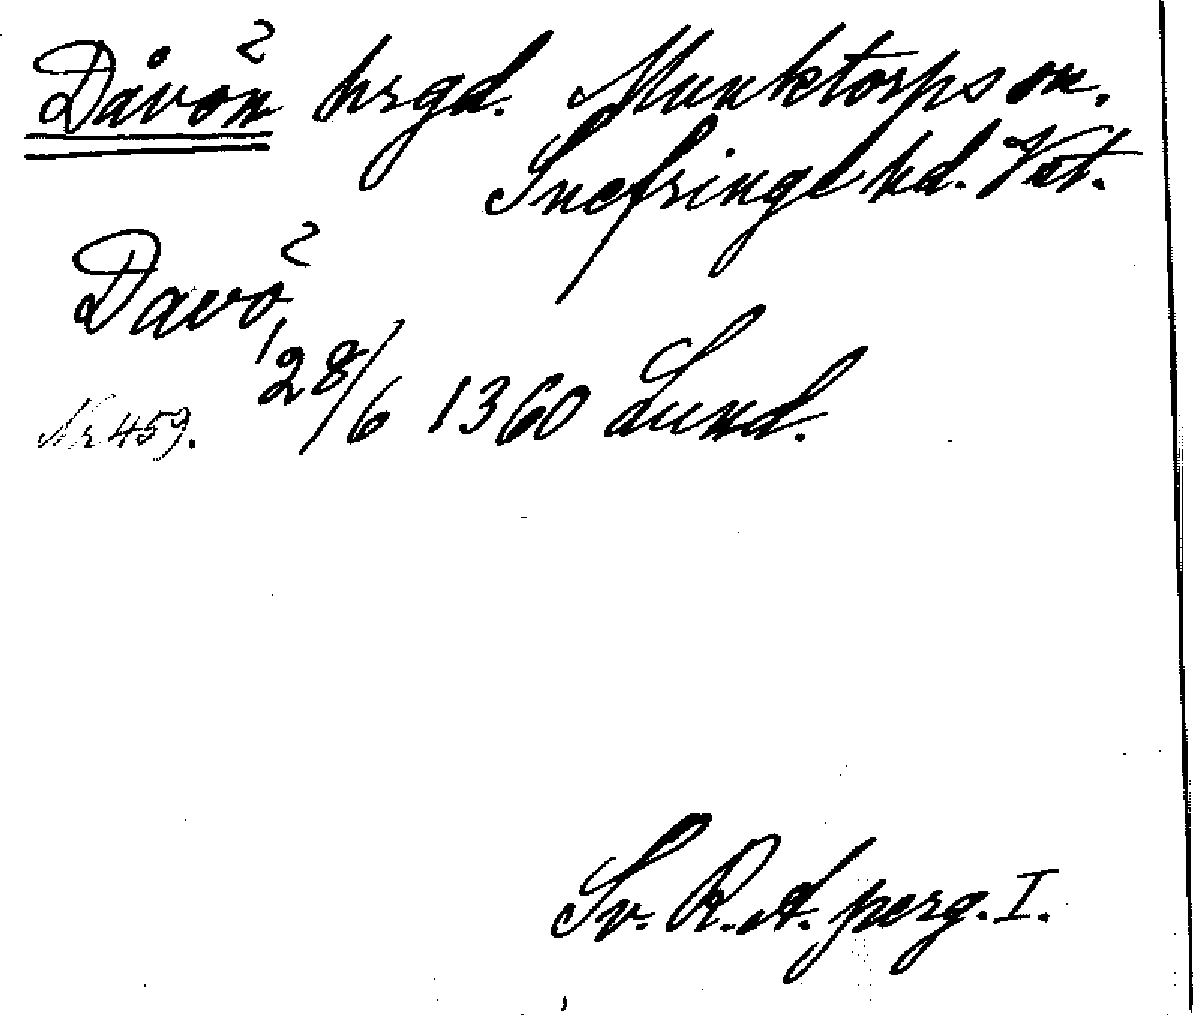 Dåvön² hrgd. Munktorps sn.
Snefringe hd. Vstm.
Davø²
28/6 1360 Lund.
Nr 459.
Sv. R. A. perg. I.